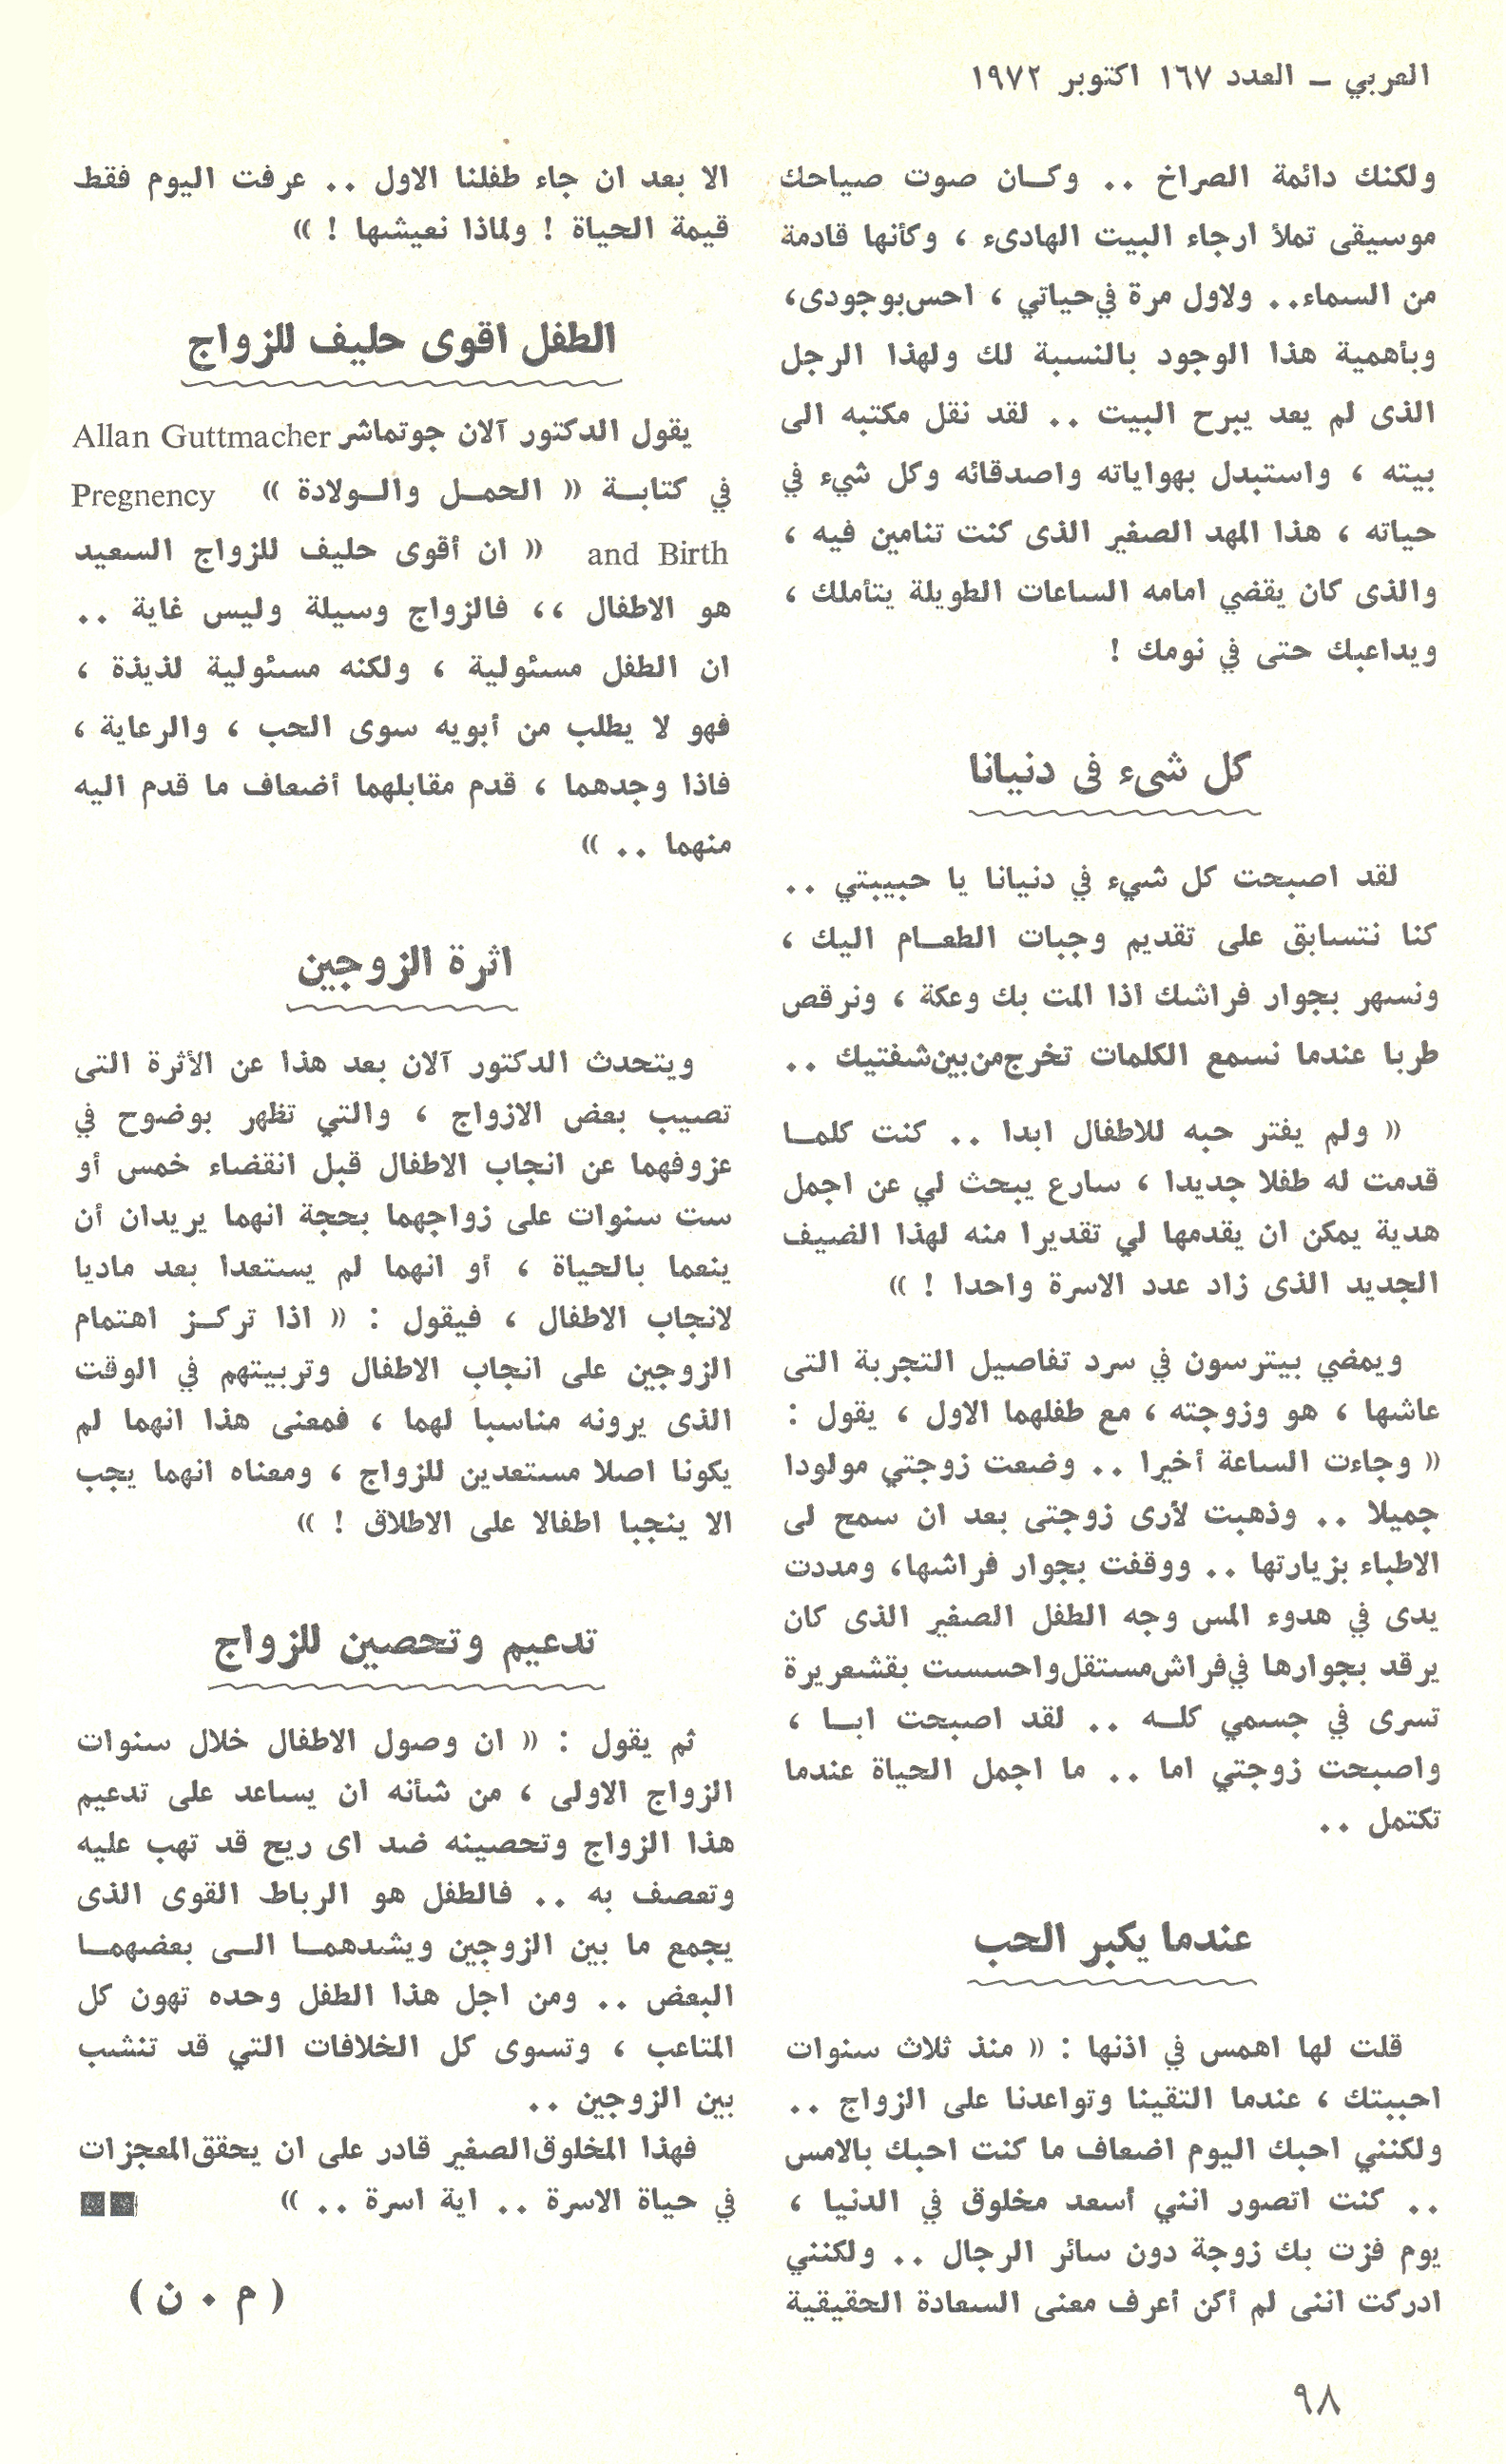 العربي – العدد ١٦٧ اكتوبر ١٩٧٢
ولكنك دائمة الصراخ .. وكــان صوت صياحك
موسيقى تملأ ارجاء البيت الهادىء ، وكأنها قادمة
من السماء.. ولاول مرة في حياتي ، احس بوجودى،
وبأهمية هذا الوجود بالنسبة لك ولهذا الرجل
الذى لم يعد يبرح البيت .. لقد نقل مكتبه الى
بيته ، واستبدل بهواياته واصدقائه وكل شيء في
حياته ، هذا المهد الصغير الذى كنت تنامين فيه ،
والذى كان يقضي امامه الساعات الطويلة يتأملك ،
ويداعبك حتى في نومك !
كل شىء فى دنيانا
لقد اصبحت كل شيء في دنيانا يا حبيبتي ..
كنا نتسابق على تقديم وجبات الطعــام اليك ،
ونسهر بجوار فراشك اذا المت بك وعكة ، ونرقص
طربا عندما نسمع الكلمات تخرج من بين شفتيك ..
« ولم يفتر حبه للاطفال ابدا .. كنت كلمــا
قدمت له طفلا جديدا ، سارع يبحث لي عن اجمل
هدية يمكن ان يقدمها لي تقديرا منه لهذا الضيف
الجديد الذى زاد عدد الاسرة واحدا ! »
ويمضي بيترسون في سرد تفاصيل التجربة التى
عاشها ، هو وزوجته ، مع طفلهما الاول ، يقول :
« وجاءت الساعة أخيرا .. وضعت زوجتي مولودا
جميلا .. وذهبت لأرى زوجتى بعد ان سمح لى
الاطباء بزيارتها .. ووقفت بجوار فراشها، ومددت
يدى في هدوء المس وجه الطفل الصغير الذى كان
يرقد بجوارها في فراش مستقل واحسست بقشعريرة
تسرى في جسمي كلــه .. لقد اصبحت ابــا ،
واصبحت زوجتي اما .. ما اجمل الحياة عندما
تكتمل ..
عندما يكبر الحب
قلت لها اهمس في اذنها : « منذ ثلاث سنوات
احببتك ، عندما التقينا وتواعدنا على الزواج ..
ولكنني احبك اليوم اضعاف ما كنت احبك بالامس
.. كنت اتصور انني أسعد مخلوق في الدنيا ،
يوم فزت بك زوجة دون سائر الرجال .. ولكنني
ادركت اننى لم أكن أعرف معنى السعادة الحقيقية
الا بعد ان جاء طفلنا الاول .. عرفت اليوم فقط
قيمة الحياة ! ولماذا نعيشها ! »
الطفل اقوى حليف للزواج
يقول الدكتور آلان جوتماشر Allan Guttmacher
في كتابــة « الحمــل والــولادة » Pregnency
and Birth « ان أقوى حليف للزواج السعيد
هو الاطفال ،، فالزواج وسيلة وليس غاية ..
ان الطفل مسئولية ، ولكنه مسئولية لذيذة ،
فهو لا يطلب من أبويه سوى الحب ، والرعاية ،
فاذا وجدهما ، قدم مقابلهما أضعاف ما قدم اليه
منهما .. »
اثرة الزوجين
ويتحدث الدكتور آلان بعد هذا عن الأثرة التى
تصيب بعض الازواج ، والتي تظهر بوضوح في
عزوفهما عن انجاب الاطفال قبل انقضاء خمس أو
ست سنوات على زواجهما بحجة انهما يريدان أن
ينعما بالحياة ، أو انهما لم يستعدا بعد ماديا
لانجاب الاطفال ، فيقول : « اذا تركــز اهتمام
الزوجين على انجاب الاطفال وتربيتهم في الوقت
الذى يرونه مناسبا لهما ، فمعنى هذا انهما لم
يكونا اصلا مستعدين للزواج ، ومعناه انهما يجب
الا ينجبا اطفالا على الاطلاق ! »
تدعيم وتحصين للزواج
ثم يقول : « ان وصول الاطفال خلال سنوات
الزواج الاولى ، من شأنه ان يساعد على تدعيم
هذا الزواج وتحصينه ضد اى ريح قد تهب عليه
وتعصف به .. فالطفل هو الرباط القوى الذى
يجمع ما بين الزوجين ويشدهمــا الــى بعضهمــا
البعض .. ومن اجل هذا الطفل وحده تهون كل
المتاعب ، وتسوى كل الخلافات التي قد تنشب
بين الزوجين ..
فهذا المخلوق الصغير قادر على ان يحقق المعجزات
في حياة الاسرة .. اية اسرة .. »
( م ٠ ن )
٩٨